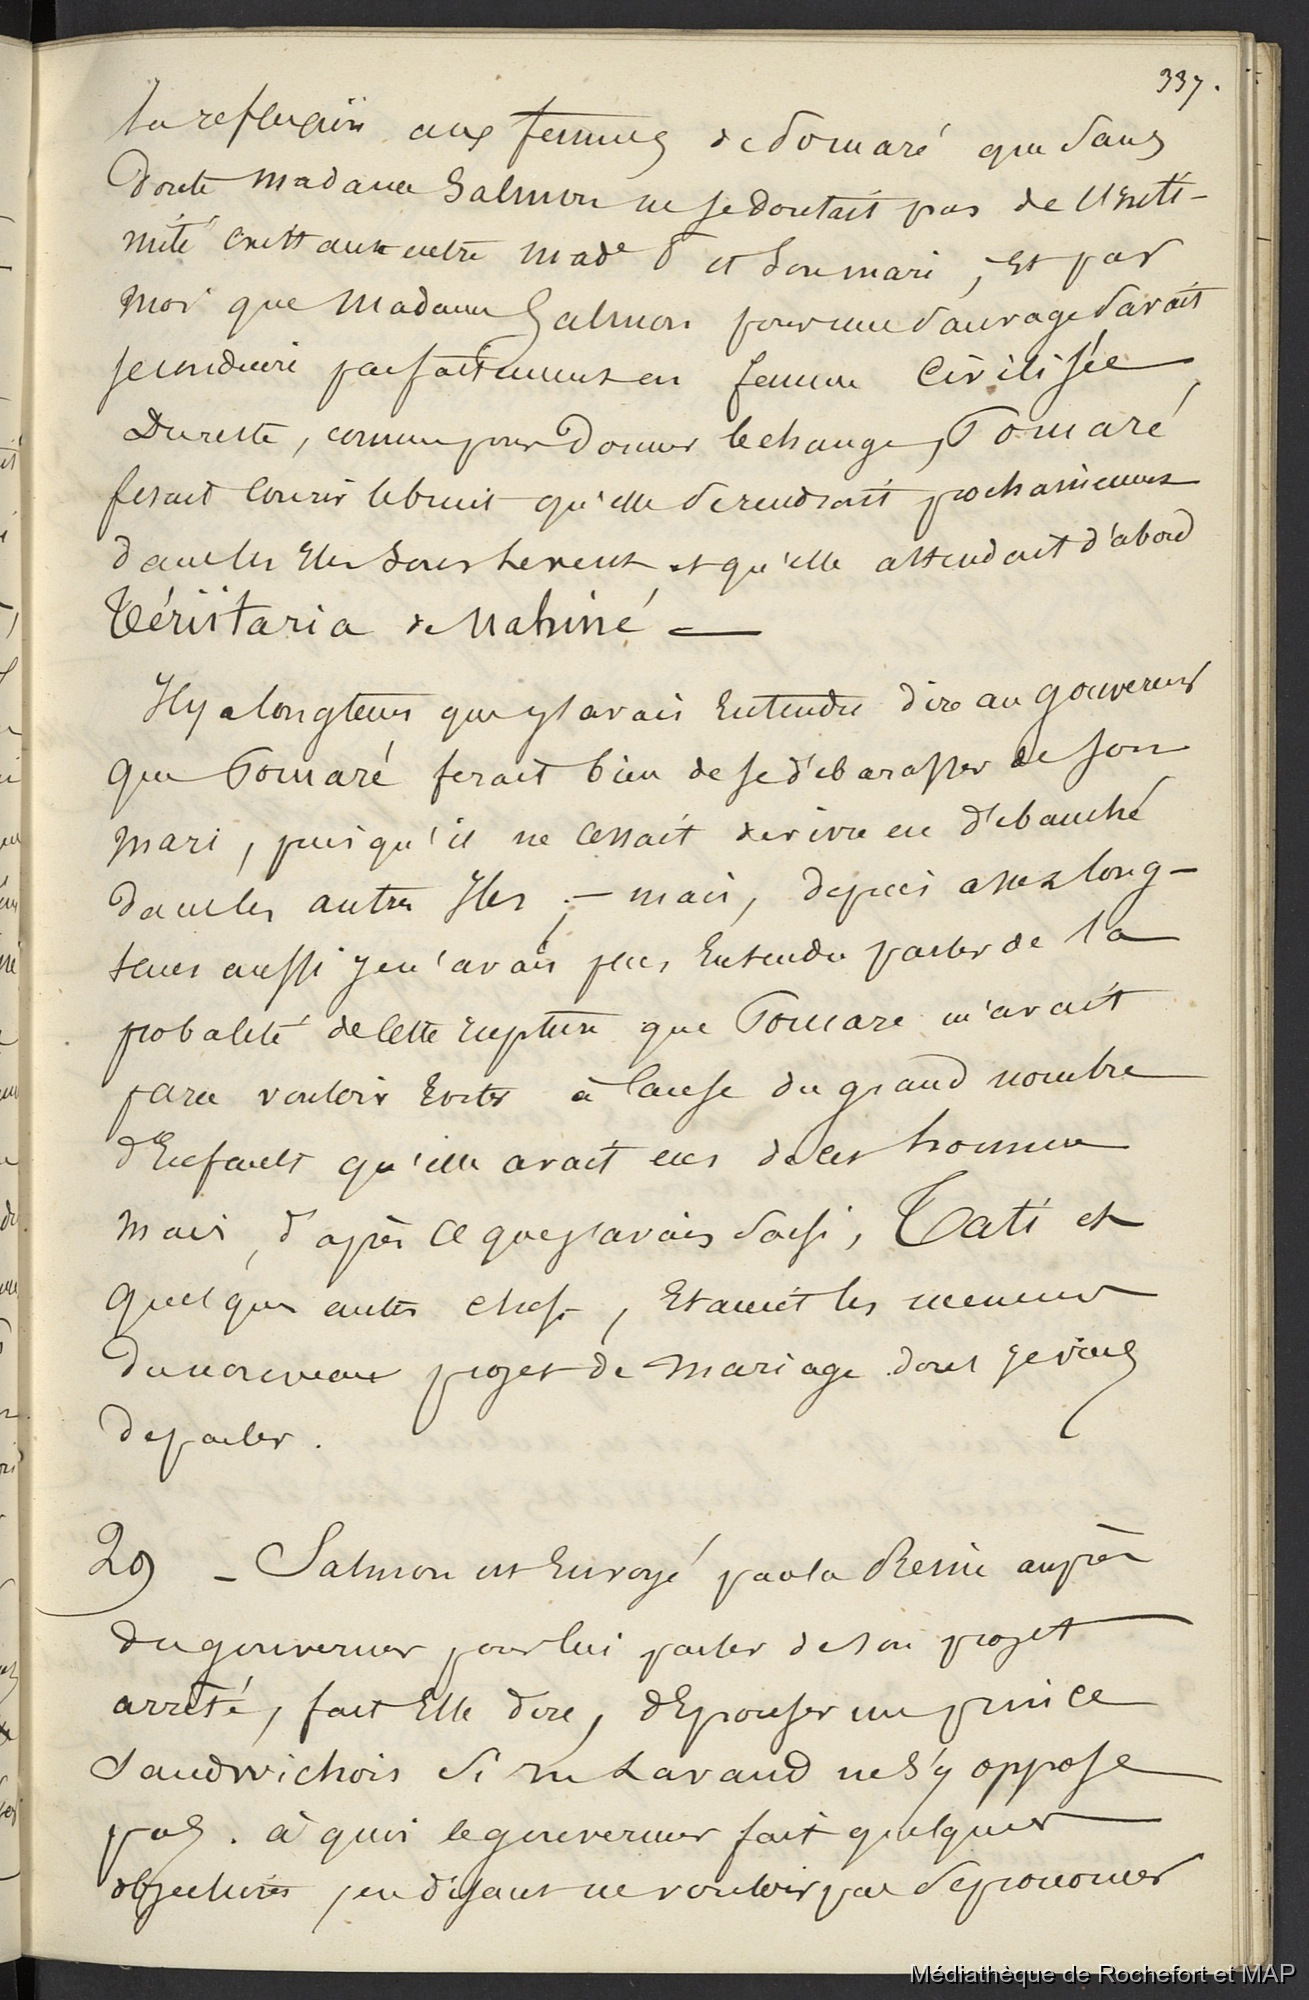 337.
la reflexion aux femmes de Pomaré que sans
doute madame Salmon ne se doutait pas de l'Inti-
mité Existante entre Made P et Son mari, Et par
moi que Madame Salmon pour une Sauvage Savait
se conduire parfaitement en femme Civilisée
Du reste, comme pour Donner le change, Pomaré
fesait Courir le bruit qu'elle Se rendrait prochainement
dans les Iles Sous le vent et qu'elle attendait d'abord
Tériitaria de Mahiné —
Il y a longtems que j'avais Entendu dire au gouverneur
que Pomaré ferait bien de se débarasser de son
mari, puisqu'il ne Cessait de vivre en débauché
dans les autres Iles ; — mais, depuis assez long-
tems aussi je n'avais plus Entendu parler de la
probalité de Cette rupture que Pomaré m'avait
paru vouloir Eviter à Cause du grand nombre
d'Enfants qu'elle avait eus de Cet homme
mais, d'après Ce que j'avais Saisi, Tati et
quelques autres Chefs, Etaient les meneurs
du nouveau projet de mariage dont je viens
de parler.
29 — Salmon est Envoyé par la Reine auprès
du gouverneur pour lui parler de son projet
arrêté, fait Elle dire, d'Epouser un prince
Sandwichois Si Mr Lavaud ne S'y oppose
pas. à quoi le gouverneur fait quelques
objections, en disant ne vouloir pas Se prononcer
Médiathèque de Rochefort et MAP